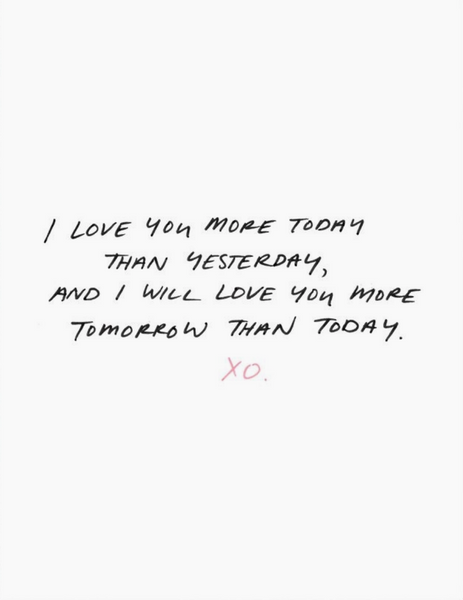 I LOVE YOU MORE TODAY
THAN YESTERDAY,
AND I WILL LOVE YOU MORE
TOMORROW THAN TODAY.
XO.